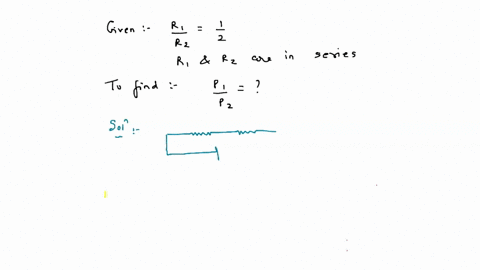 Given :- R1/R2 = 1/2
R1 & R2 are in series
To find :- P1/P2 = ?
Soln :-